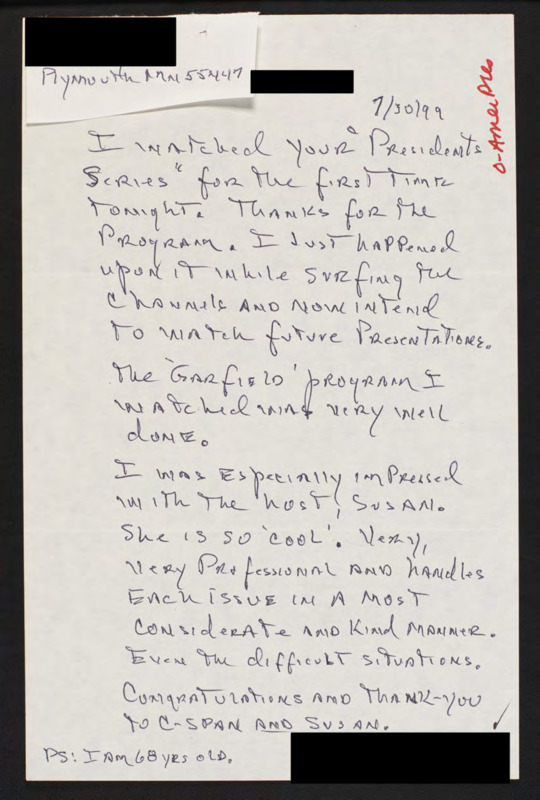 Plymouth MN 55447
7/30/99
O-Amer Pres
I watched your "Presidents
Series" for the first time
tonight. Thanks for the
program. I just happened
upon it while surfing the
channels and now intend
to watch future presentations.
The 'Garfield' program I
watched was very well
done.
I was especially impressed
with the host, Susan.
She is so 'cool'. Very,
very professional and handles
each issue in a most
considerate and kind manner.
Even the difficult situations.
Congratulations and thank-you
to C-SPAN and Susan.
PS: I am 68 yrs old.